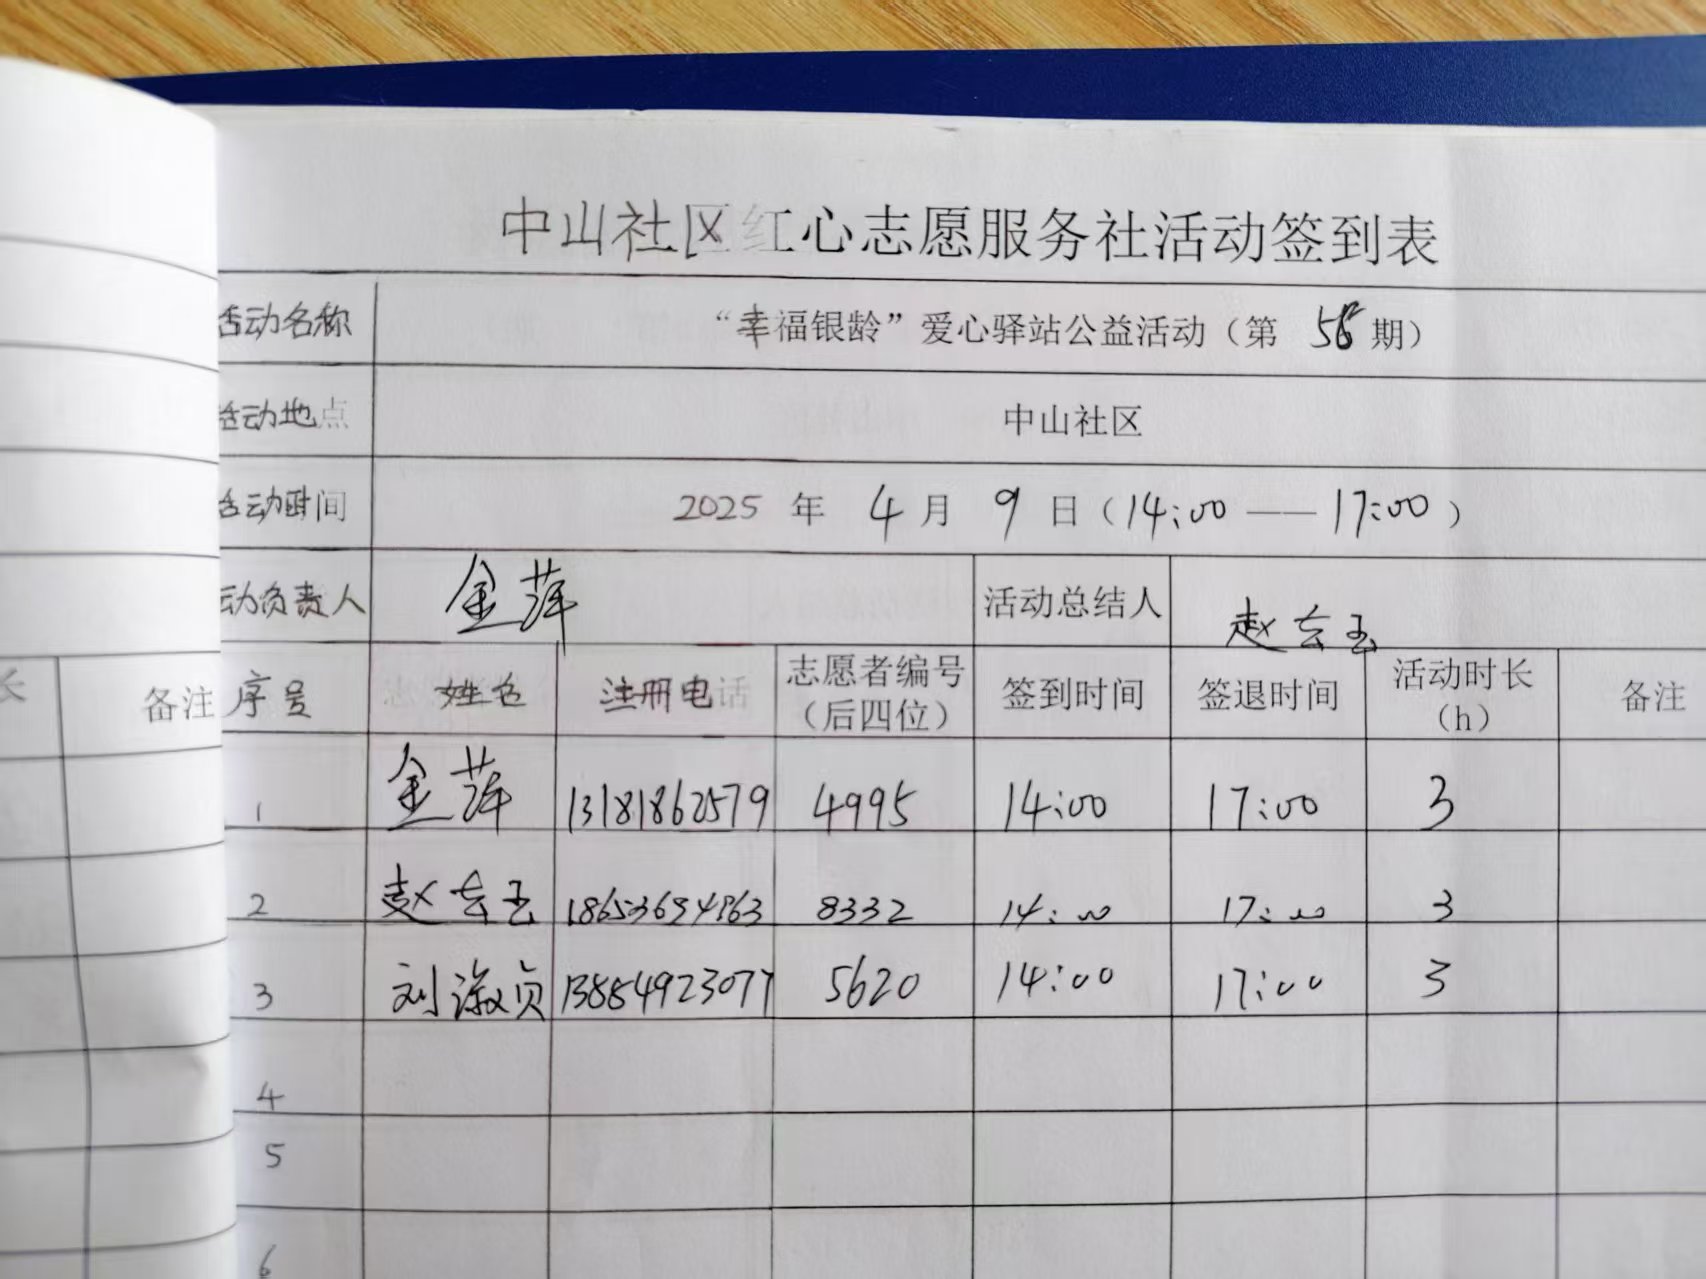 中山社区红心志愿服务社活动签到表
活动名称 “幸福银龄”爱心驿站公益活动（第 58 期）
活动地点 中山社区
活动时间 2025 年 4 月 9 日（14:00 —— 17:00）
动负责人 金萍 活动总结人 赵云玉
长 备注
序号 姓名 注册电话 志愿者编号（后四位） 签到时间 签退时间 活动时长（h） 备注
1 金萍 13181862579 4995 14:00 17:00 3
2 赵云玉 8332 14:00 17:00 3
3 刘淑贞 13884923077 5620 14:00 17:00 3
4
5
6